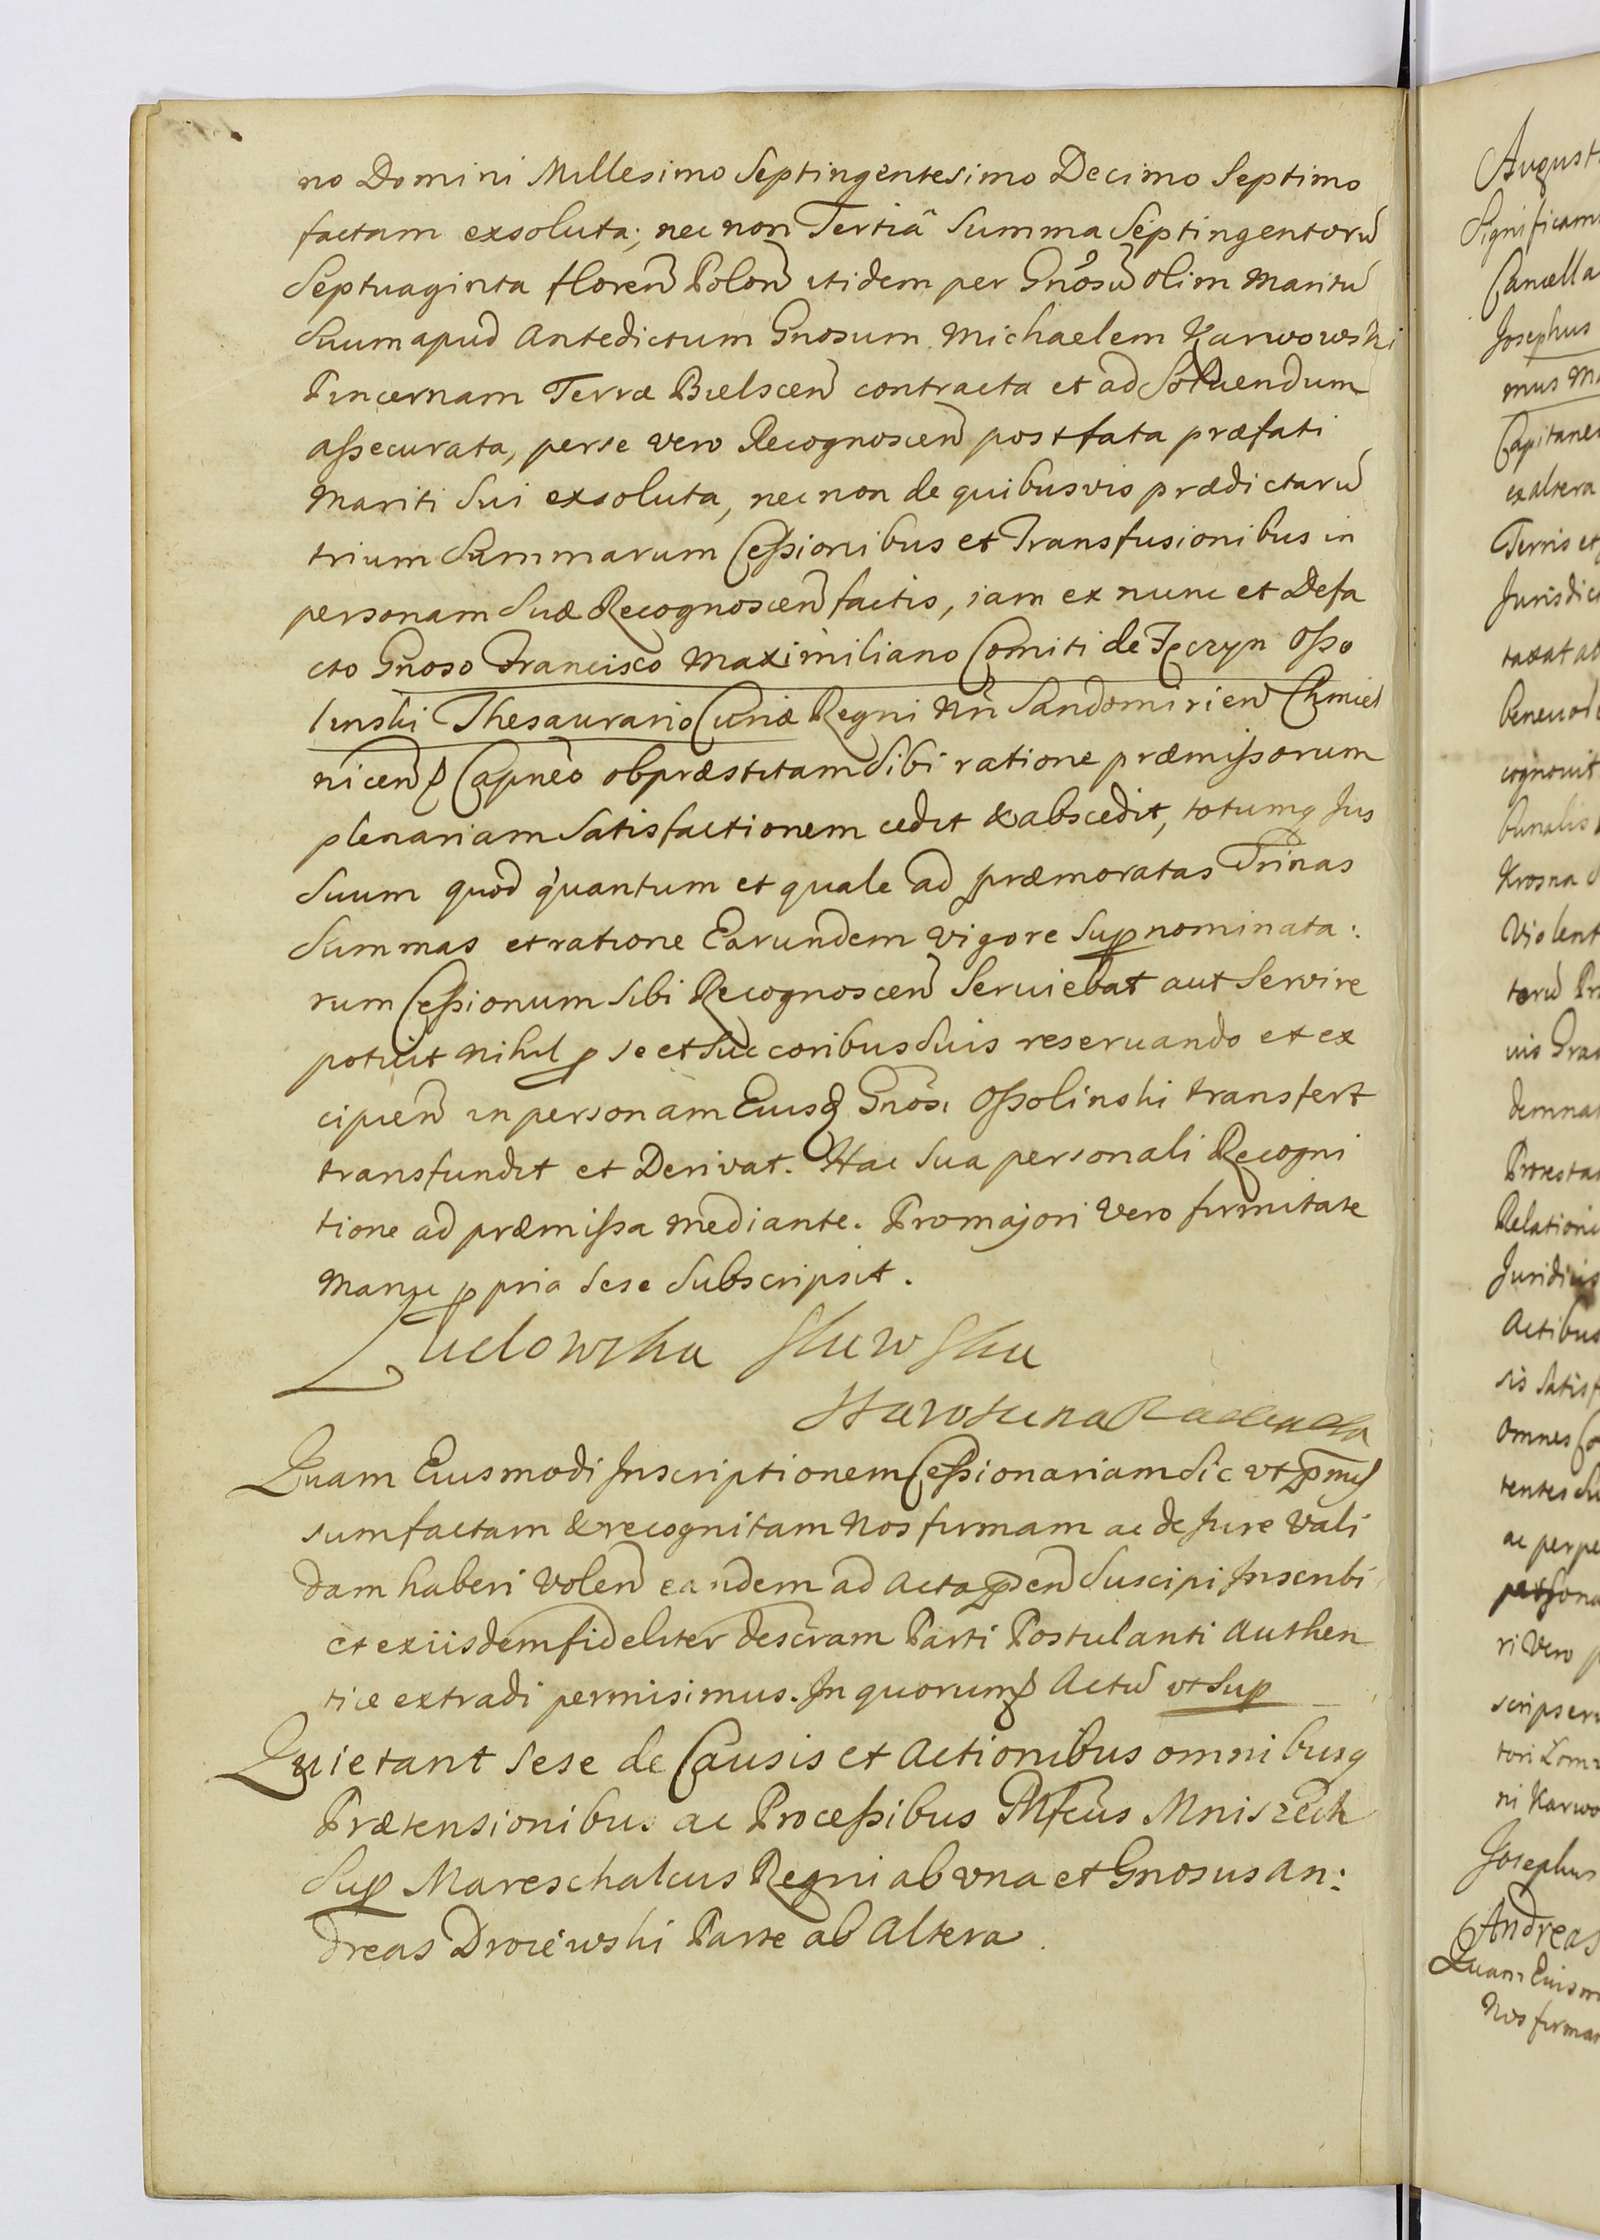 no Domini Millesimo Septingentesimo Decimo Septimo
factam exsoluta; nec non Tertiâ Summa Septingentorũ
Septuaginta floreñ Poloñ itidem per Gnõsũ olim Maritũ
Suum apud Antedictum Gnosum Michaelem Karwowski
Pincernam Terræ Bielsceñ contracta et ad Solvendum
assecurata, per se vero Recognosceñ post fata præfati
Mariti Sui exsoluta, nec non de quibusvis prædictarũ
trium Summarum Cessionibus et Transfusionibus in
personam Suæ Recognosceñ factis, iam ex nunc et Defa
cto Gnoso Francisco Maximiliano Comiti de Tęczyn Osso
linski Thesaurario Curiæ Regni Nñ Sandomirieñ Chmiel
niceñq Capnẽo ob præstitam Sibi ratione præmissorum
plenariam Satisfactionem cedit & abscedit, totumq Jus
Suum quod quantum et quale ad præmoratas Trinas
Summas et ratione Earundem vigore Sup nominata:
rum Cessionum Sibi Recognosceñ Serviebat aut Servire
potuit Nihil p se et Succoribus Suis reservando et ex
cipieñ in personam Eiusd Gnõsi Ossolinski transfert
transfundit et Derivat. Hac Sua personali Recogni
tione ad præmissa mediante. Pro majori Vero firmitate
Manu ppria Sese Subscripsit.
Starościna
Quam Eiusmodi Inscriptionem Cessionariam Sic vt pmis
sum factam & recognitam Nos firmam ac de Jure Vali
dam haberi Voleñ eandem ad Acta pseñ Suscipi Inscribi
et ex iisdem fideliter descriram Parti Postulanti Authen
tice extradi permisimus. In quorum Actũ vt Sup
Quietant Sese de Causis et Actionibus omnibusq
Prætensionibus ac Processibus Mfcus Mniszech
Sup Mareschalcus Regni ab vna et Gnosus An:
dreas Drozewski Parte ab Altera
August
Significam
Cancella
Josephus
mus M
Capitane
ex altera
Terris et
Jurisdic
taxat ab
benevol
cognovit
bunalis
Krosna
Violent
torũ Pr
uis Gra
demna
Protesta
Relation
Juridicis
Actibus
sis Satisf
omnes Co
tentes Su
ac perpe
persona
ri Vero p
scripser
tori Lom
ni Karwo
Josephus
Andreas
Quam Euism
Nos firma